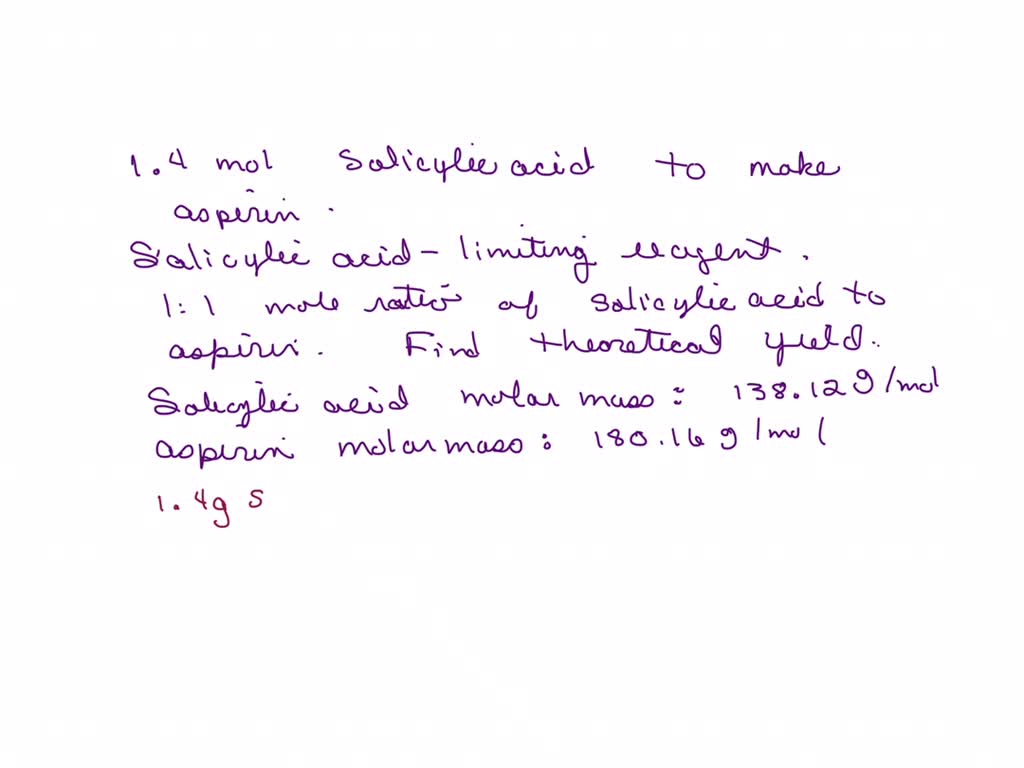 1.4 mol Salicylic acid to make
aspirin.
Salicylic acid - limiting reagent.
1:1 mole ratio of salicylic acid to
aspirin. Find theoretical yield.
Salicylic acid molar mass: 138.12 g/mol
aspirin molar mass: 180.16 g/mol
1.4g S